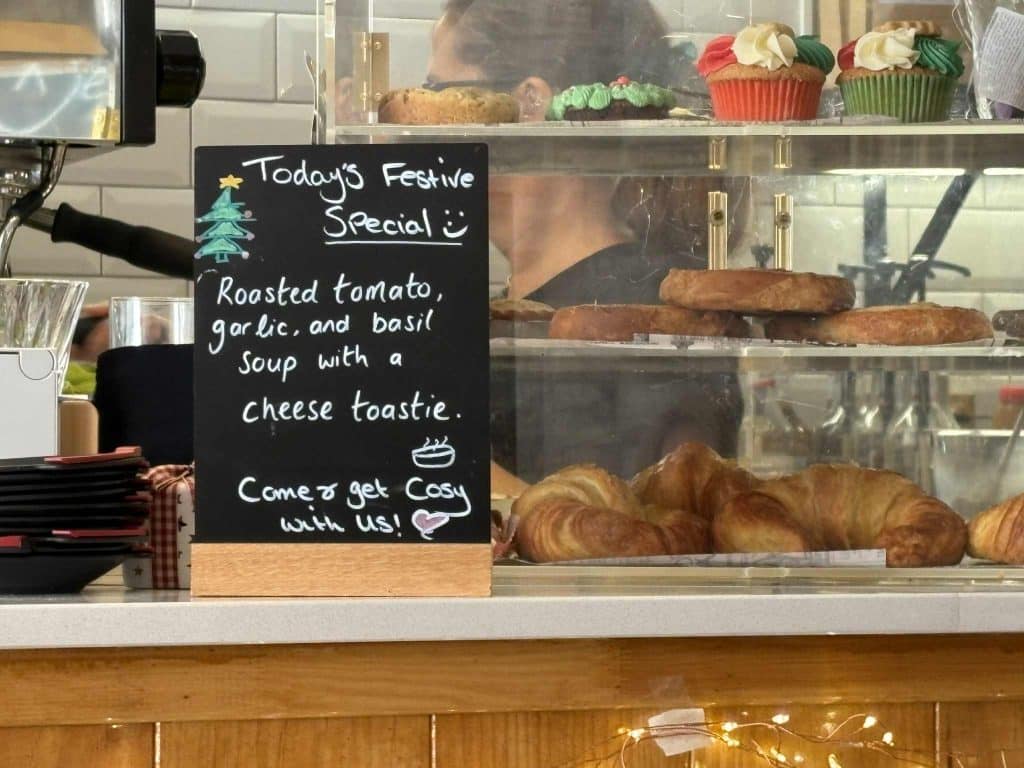 Today's Festive
Special
Roasted tomato,
garlic, and basil
soup with a
cheese toastie.
Come & get Cosy
with us!